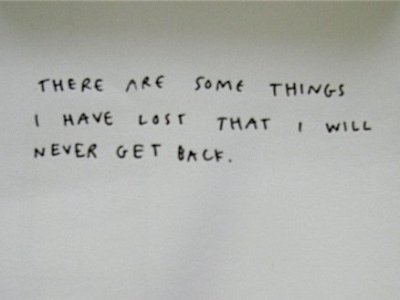 THERE ARE SOME THINGS
I HAVE LOST THAT I WILL
NEVER GET BACK.